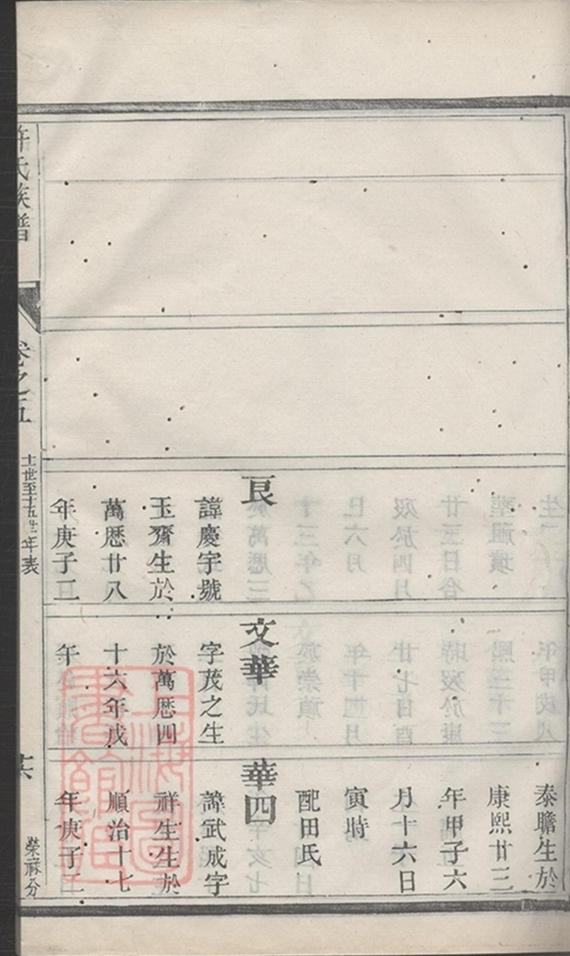 泰瞻生於
康熙廿三
年甲子六
月十六日
寅時
配田氏
艮
諱慶字號
玉齋生於
萬曆廿八
年庚子二
文華
字茂之生
於萬曆四
十六年戊
午
華四
諱武成字
祥生生於
順治十七
年庚子二
許氏族譜
卷之五
十一世至十五世年表